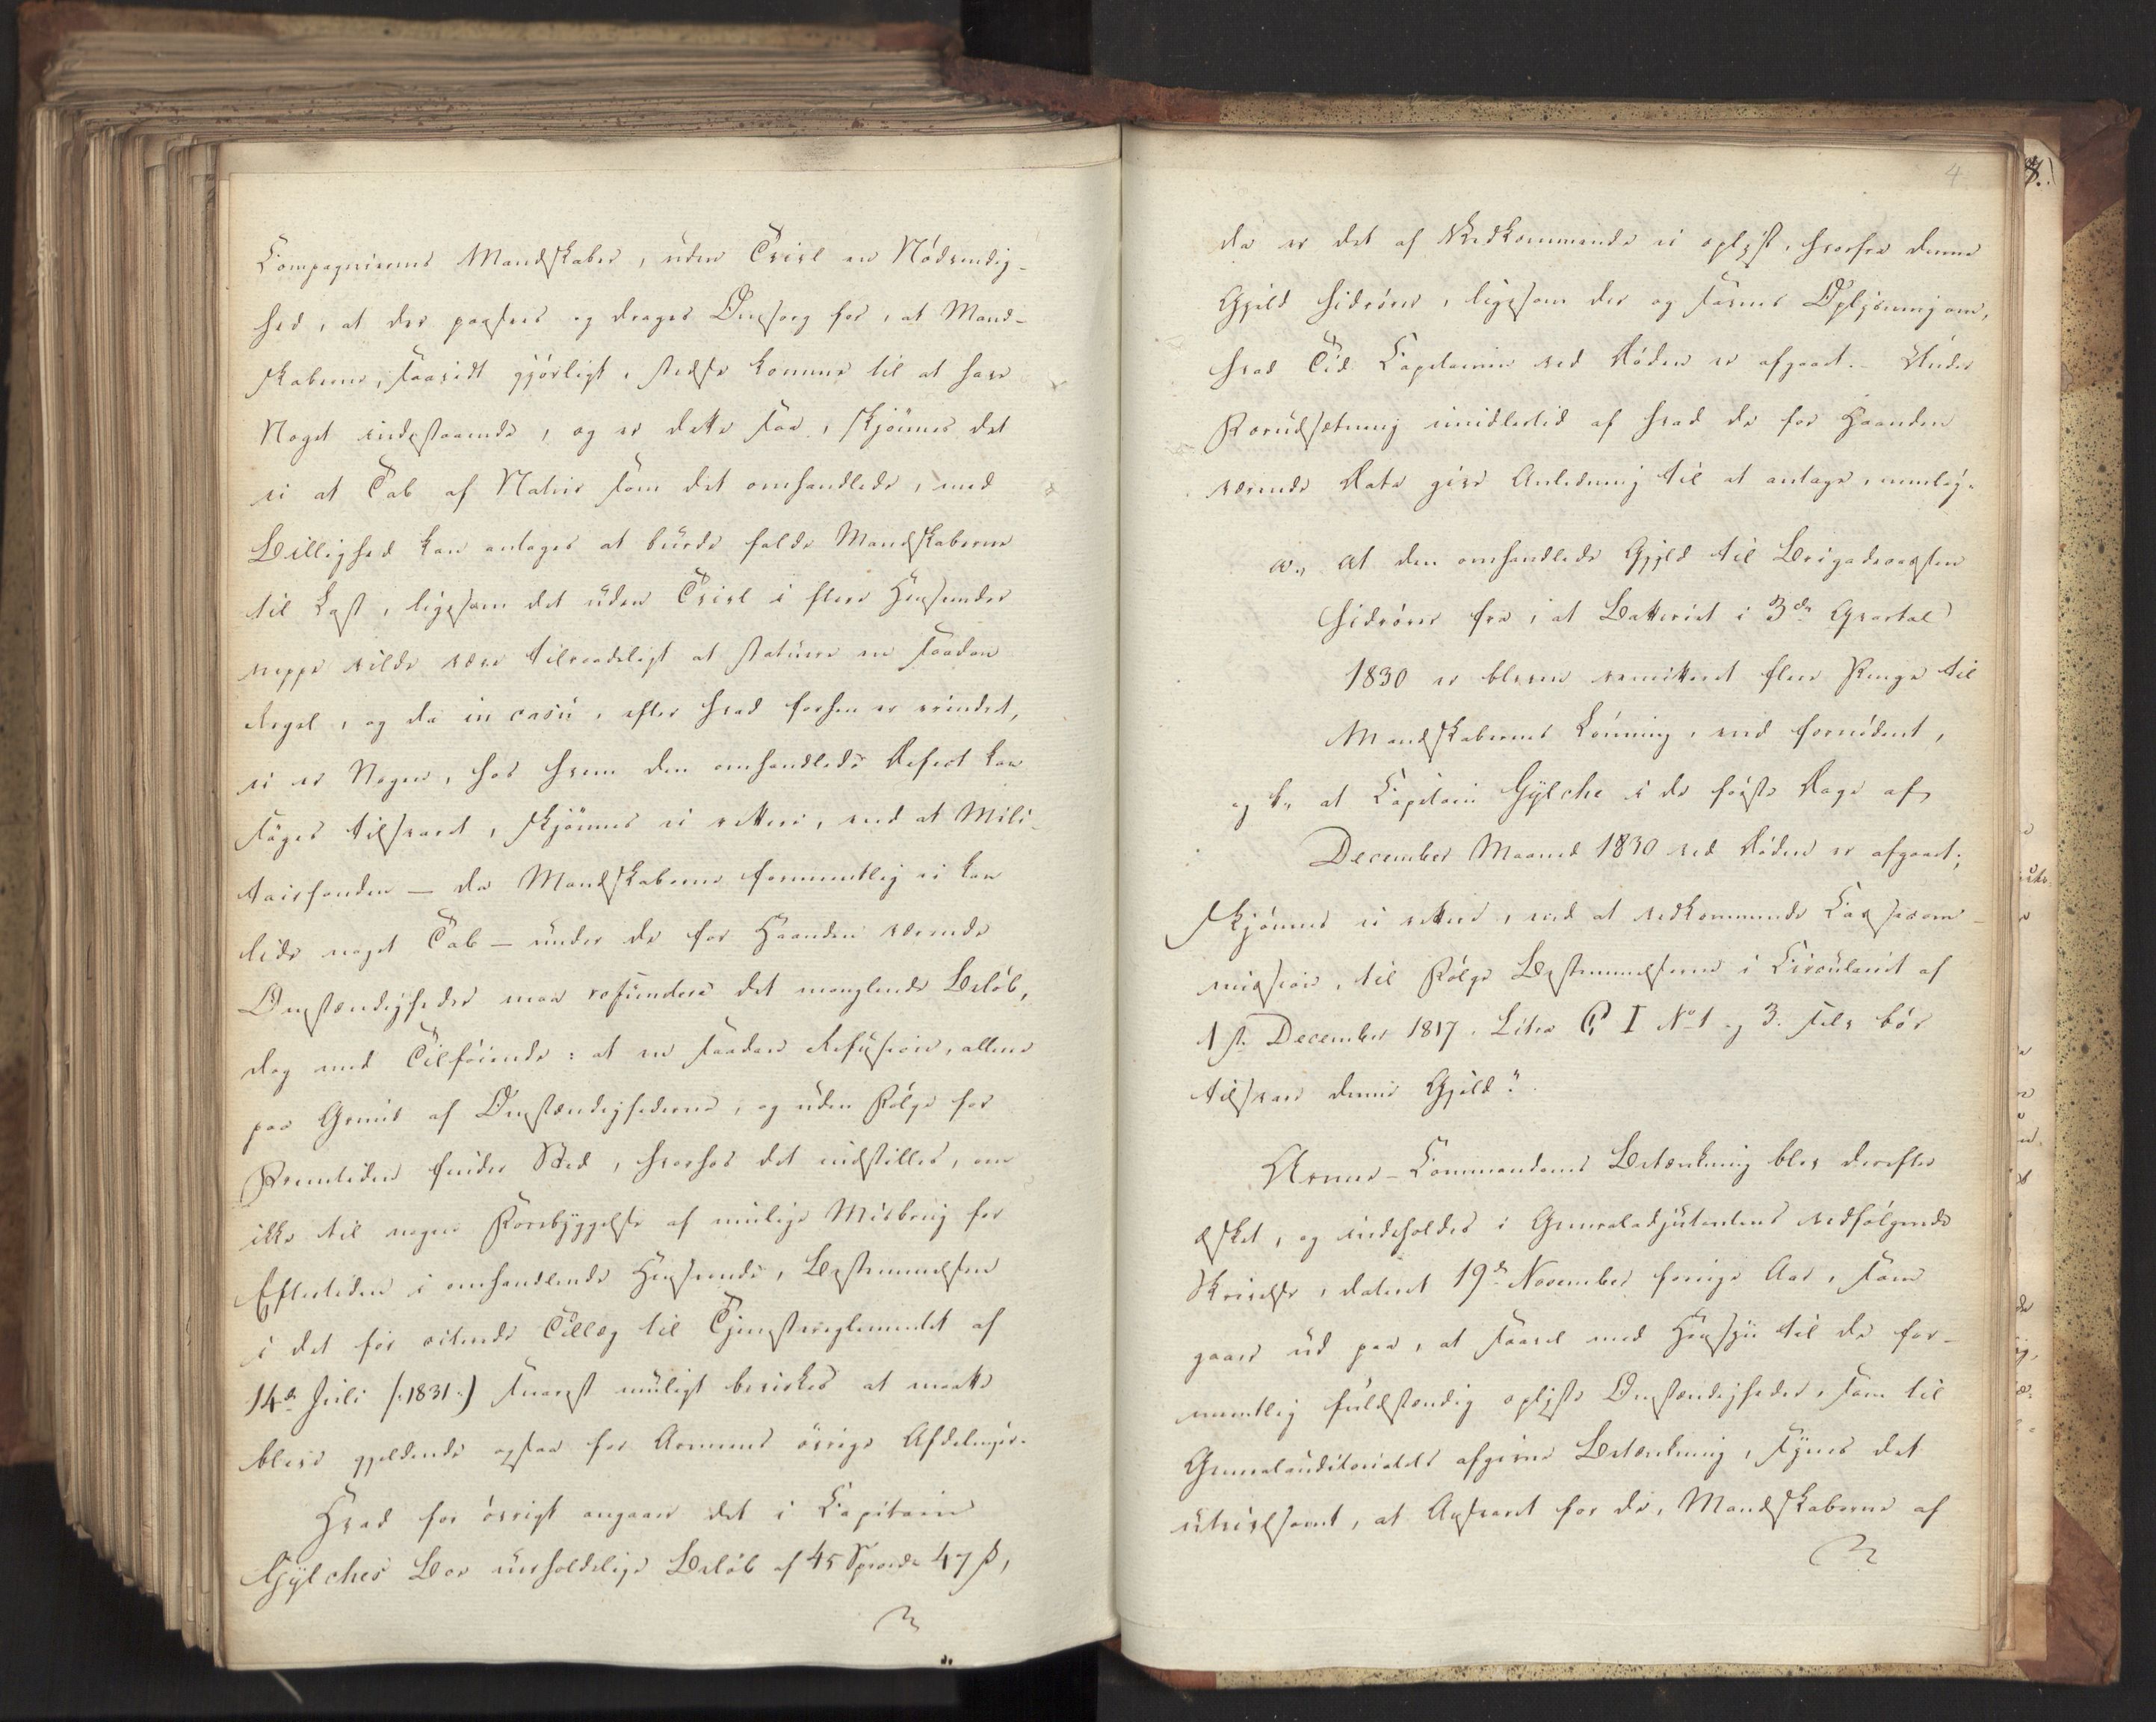 Compagniernes Mandskaber, uden Tvivl en Nödvendig-
hed, at der passes og drages Omsorg for, at Mand-
skaberne, saavidt gjörligt, stedse komme til at have
Noget indestaaende, og er dette saa, skjönnes det
ei at Tab af Natur som det omhandlede, med
Billighed kan antages at burde falde Mandskaberne
til Last, ligesom det uden Tvivl i flere Henseender
neppe vilde være tilraadeligt at statuere en saadan
Regel, og da in casu, efter hvad forhen er erindret,
ei er Nogen, hos hvem den omhandlede Defect kan
söges tilsvaret, skjönnes ei rettere, end at Mili-
tairfonden – da Mandskaberne formeentlig ei kan
lide noget Tab – under de for Haanden værende
Omstændigheder maa refundere det manglende Belöb,
dog med Tilföiende: at en saadan Refusion, allene
paa Grund af Omstændighederne, og uden Fölge for
Fremtiden finder Sted, hvorhos det indstilles, om
ikke til nogen Forebyggelse af mulige Misbrug for
Eftertiden i omhandlende Henseende, Bestemmelsen
i det för citerede Tillæg til Tjenestereglementet af
14de Juli (:1831:) snarest muligt bevirkes at maatte
blive gjeldende ogsaa for Armeens övrige Afdelinger.
Hvad for övrigt angaaer det i Capitain
Gylches Boe uerholdelige Belöb af 45 Spd. 47 ß,
4
da er det af Vedkommende ei oplyst, hvorfra denne
Gjeld hidrörer, ligesom der og savnes Oplysning om,
hvad Tid Capitainen ved Döden er afgaaet. Under
Forudsætning imidlertid af hvad de for Haanden
værende Data give Anledning til at antage, nemlig:
a., at den omhandlede Gjeld til Brigadecassen
hidrörer fra, at Batteriet i 3de Qvartal
1830 er bleven remitteret flere Penge til
Mandskabernes Lönning, end fornödent,
og b., at Capitain Gylche i de förste Dage af
December Maaned 1830 ved Döden er afgaaet;
skjönnes ei rettere, end at vedkommende Cassecom-
mission, til Fölge Bestemmelserne i Circulairet af
1ste December 1817, Litra C, I No 1 og 3. selv bör
tilsvare denne Gjeld."
Armee-Commandoens Betænkning blev derefter
æsket, og indeholdes i Generaladjutantens vedfölgende
Skrivelse, dateret 19de November forrige Aar, som
gaaer ud paa, at saavel med Hensyn til de for-
meentlig fuldstændig oplyste Omstændigheder, som til
Generalauditoriatets afgivne Betænkning, synes det
utvivlsomt, at Ansvaret for de, Mandskaberne af